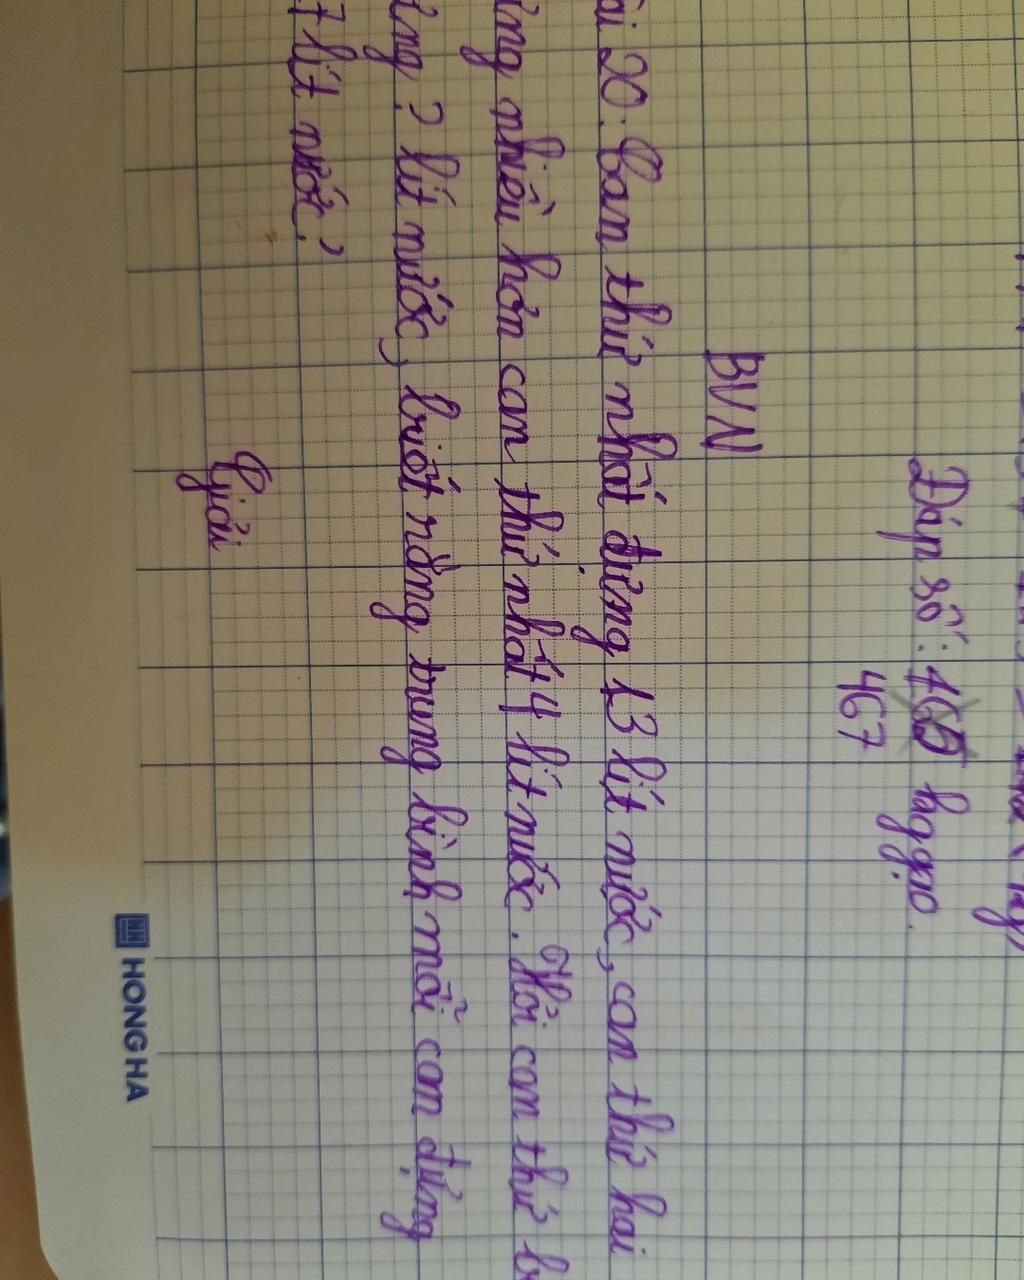 Đáp số: 165 kg gạo.
467
BVN
ài 20: Can thứ nhất đựng 13 lít nước, can thứ hai
ựng nhiều hơn can thứ nhất 4 lít nước. Hỏi can thứ b
ựng ? lít nước, biết rằng trung bình mỗi can đựng
7 lít nước?
Giải
HONG HA